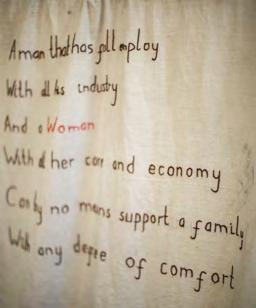 A man that has full employ
With all his industry
And a Woman
With all her care and economy
Can by no means support a family
With any degree of comfort